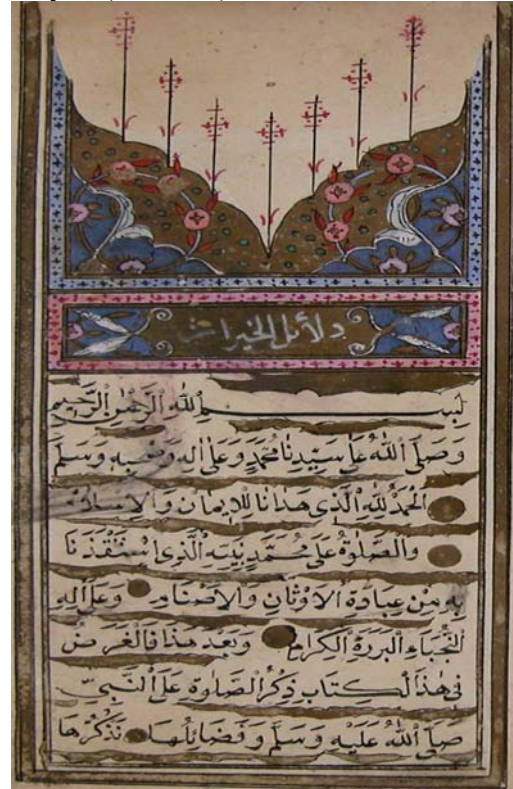 دلائل الخيرات
بِسْمِ اللهِ الرَّحْمٰنِ الرَّحِيمِ
وَصَلَّى اللهُ عَلَى سَيِّدِنَا مُحَمَّدٍ وَعَلٰى اٰلِهِ وَصَحْبِهِ وَسَلَّمَ
اَلْحَمْدُ لِلّٰهِ الَّذِى هَدٰانَا لِلْاِيمَانِ وَالْاِسْلَامِ
وَالصَّلٰوةُ عَلٰى مُحَمَّدٍ نَبِيِّهِ الَّذِى اسْتَنْقَذَنَا
بِهِ مِنْ عِبَادَةِ الْاَوْثَانِ وَالْاَصْنَامِ وَعَلٰى اٰلِهِ
النُّجَبَاءِ الْبَرَرَةِ الْكِرَامِ وَبَعْدَ هٰذَا فَالْغَرَضُ
فِى هٰذَا الْكِتَابِ ذِكْرُ الصَّلٰوةِ عَلَى النَّبِىِّ
صَلَّى اللهُ عَلَيْهِ وَسَلَّمَ وَفَضَائِلُهَا نَذْكُرُهَا